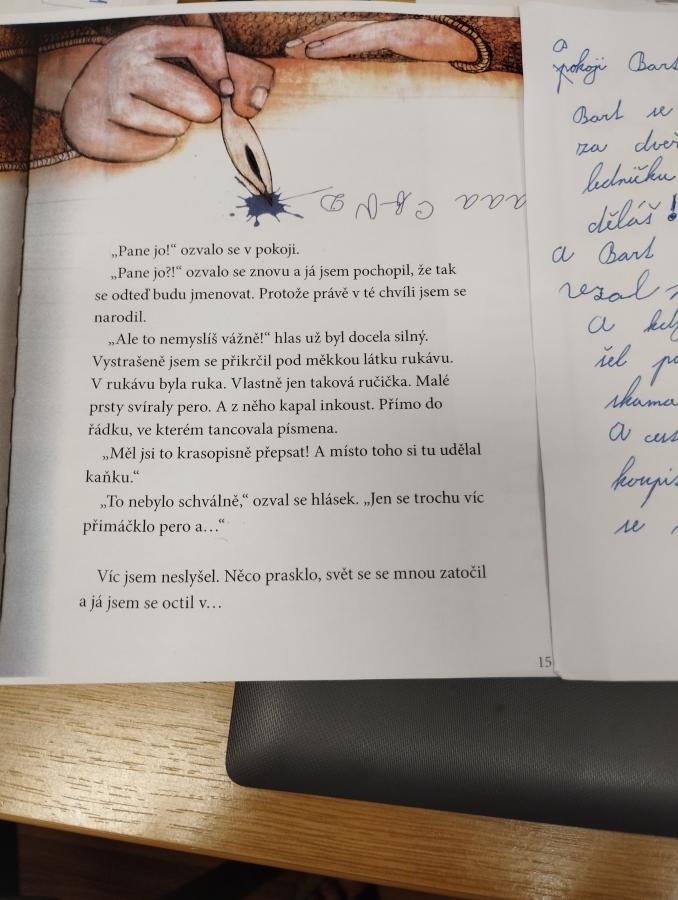 „Pane jo!“ ozvalo se v pokoji.
„Pane jo?!“ ozvalo se znovu a já jsem pochopil, že tak
se odteď budu jmenovat. Protože právě v té chvíli jsem se
narodil.
„Ale to nemyslíš vážně!“ hlas už byl docela silný.
Vystrašeně jsem se přikrčil pod měkkou látku rukávu.
V rukávu byla ruka. Vlastně jen taková ručička. Malé
prsty svíraly pero. A z něho kapal inkoust. Přímo do
řádku, ve kterém tancovala písmena.
„Měl jsi to krasopisně přepsat! A místo toho si tu udělal
kaňku.“
„To nebylo schválně,“ ozval se hlásek. „Jen se trochu víc
přimáčklo pero a…“
Víc jsem neslyšel. Něco prasklo, svět se se mnou zatočil
a já jsem se octil v…
15
pokoji Bart
Bart se
za dveř
ledničku
děláš!
a Bart
vzal
a kdy
šel po
skama
A
koupis
se